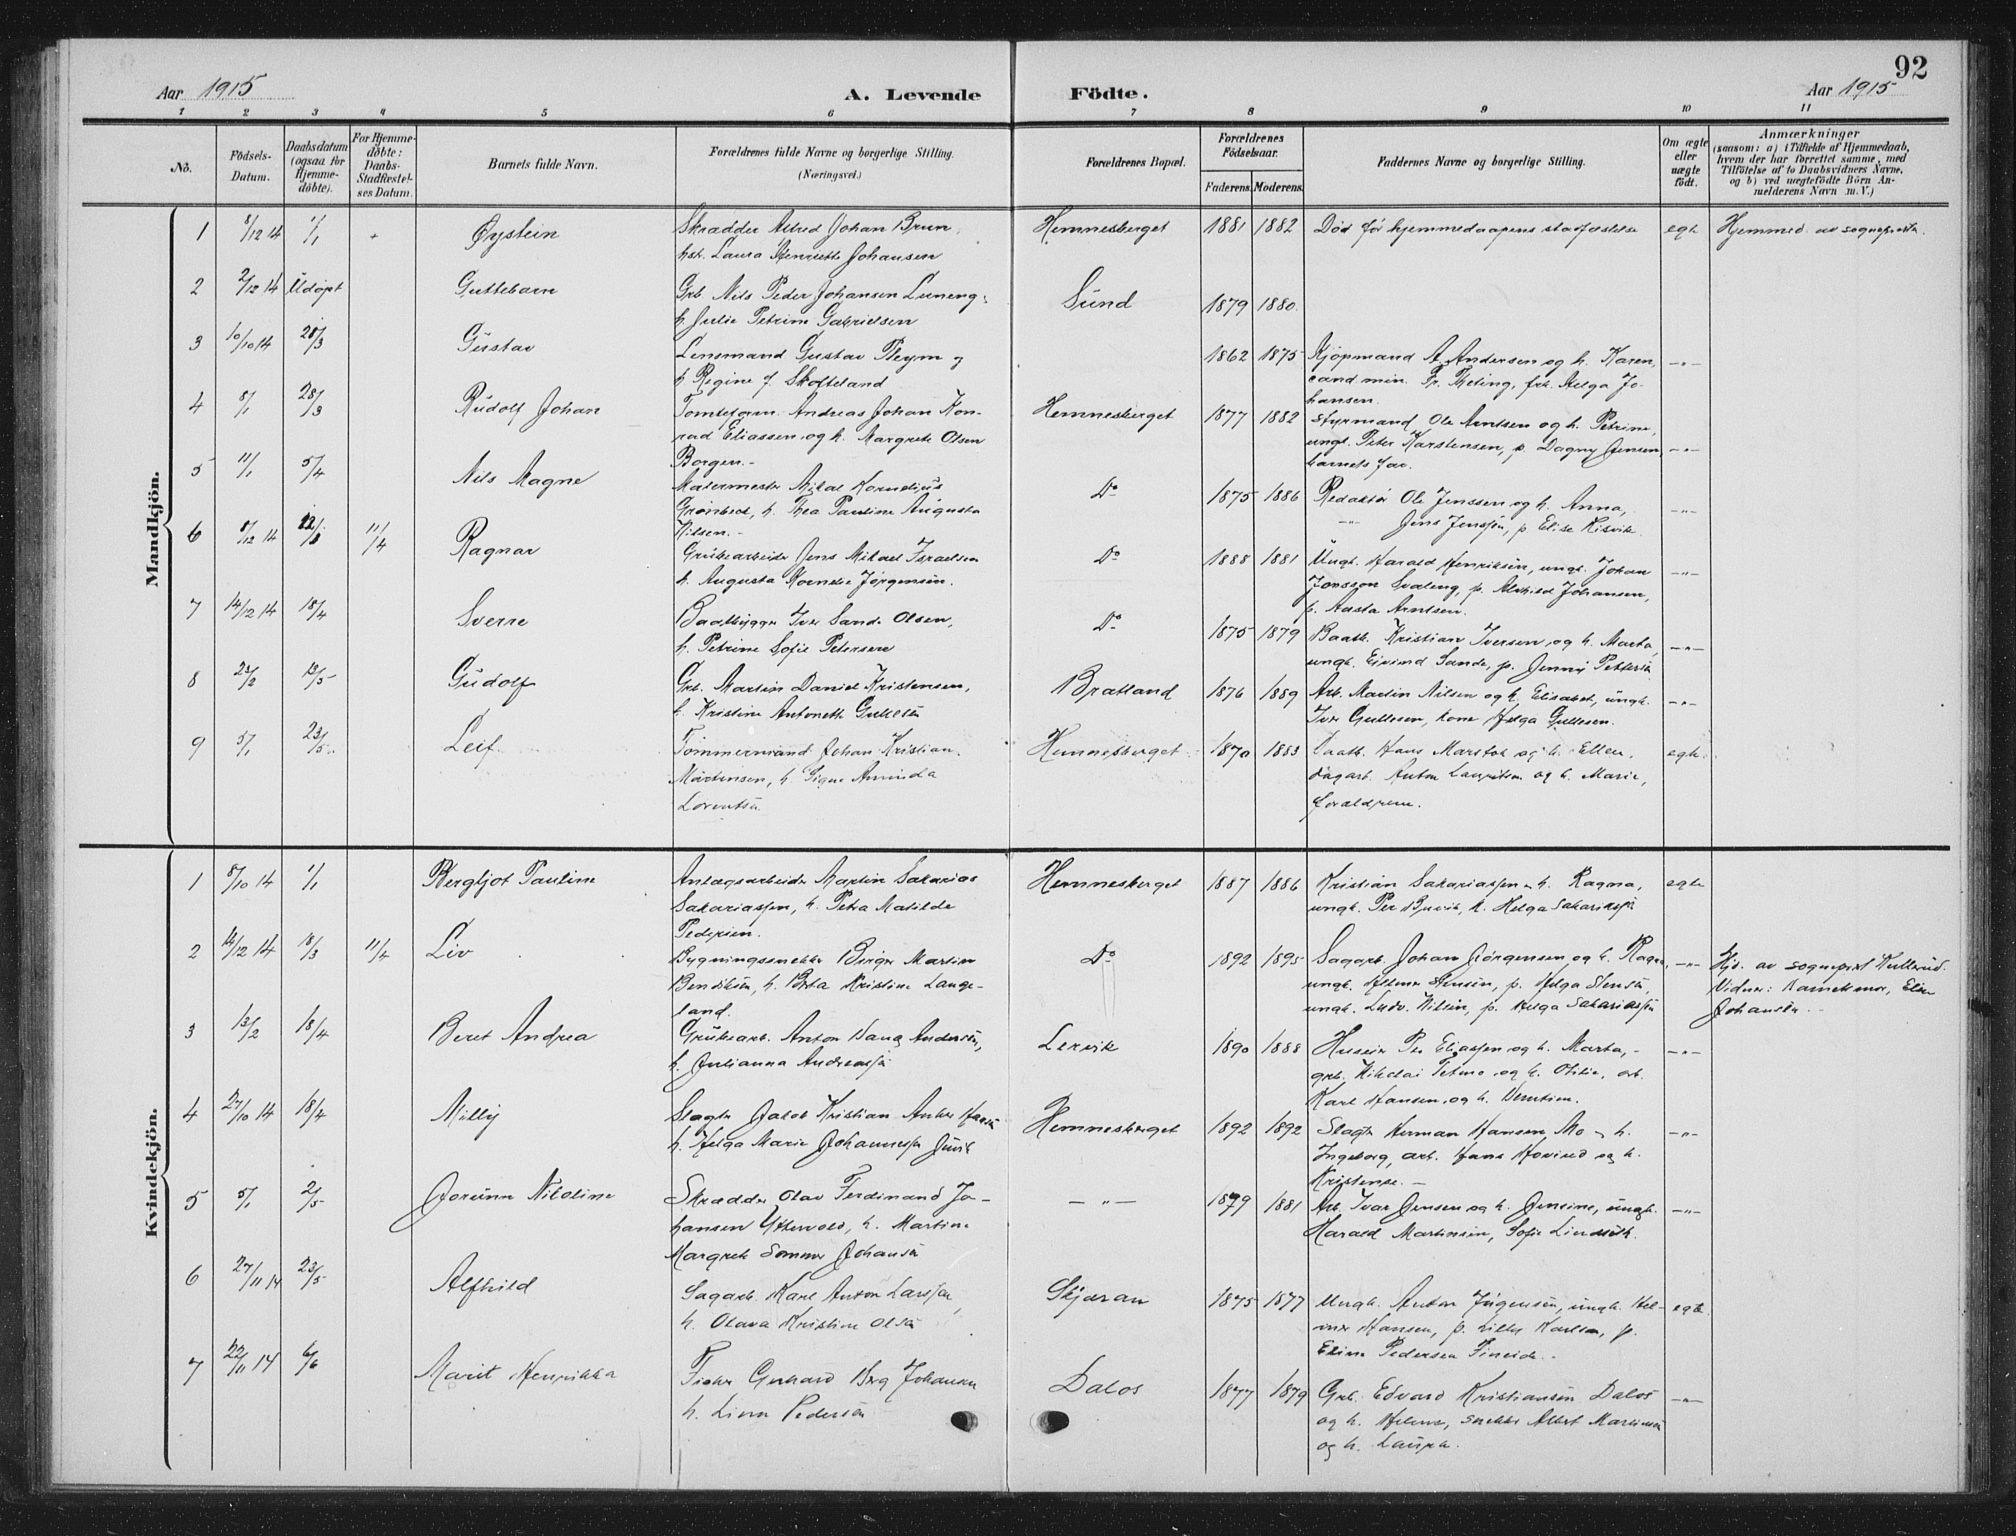 92
Aar 1915 A. Levende Födte. Aar 1915
1 2 3 4 5 6 7 8 9 10 11
No.
Födsels-
Datum.
Daabsdatum
(ogsaa for
Hjemme-
döbte).
For Hjemme-
döbte:
Daabs-
Stadfæstel-
ses Datum.
Barnets fulde Navn.
Forældrenes fulde Navne og borgerlige Stilling.
(Næringsvei.)
Forældrenes Bopæl.
Forældrenes
Födselsaar.
Faderens. Moderens.
Faddernes Navne og borgerlige Stilling.
Om ægte
eller
uægte
födt.
Anmærkninger
(saasom: a) i Tilfælde af Hjemmedaab,
hvem der har forrettet samme, med
Tilföielse af to Daabsvidners Navne,
og b) ved uægtefödte Börn An-
melderens Navn m. V.)
Mandkjön.
1 8/12 14 1/1 Øystein
Skrædder Alfred Johan Brun,
hst. Laura Henriette Johansen
Hemnesberget 1881 1882 Död før hjemmedaapens stadfæstelse egte Hjemmed. av sogneprest.
2 2/12 14 Udøpt Guttebarn
Grb. Nils Peder Johansen Luneng,
h. Julie Petrine Gabrielsen
Sund 1879 1880
3 10/10 14 28/3 Gustav
Lensmand Gustav Pleym og
h. Regine f. Skotteland
1862 1875 Kjøpmand A. Andersen og h. Karen,
cand. min. Fr. Theting, frk. Helga Jo-
hansen. -"-
4 8/1 28/3 Rudolf Johan
Tomteform. Andreas Johan Kon-
rad Eliassen og h. Margrete Olsen
Borgen.-
Hemnesberget 1877 1882 Styrmand Ole Arntsen og h. Petrine,
ungk. Peter Karstensen, p. Dagny Jensen,
barnets far. -"-
5 11/1 5/4 Nils Magne
Malermester Mikal Kornelius
Grønbeck, h. Thea Pauline Augusta
Nilsen.-
Do 1875 1886 Redaktør Ole Jenssen og h. Anna,
-"- Jens Jenssen, p. Elise Risvik. -"-
6 8/12 14 11/4 Ragnar
Grubearbeider Jens Mikael Israelsen
h. Augusta Kornelie Jørgensen.
Do 1888 1881 Ungk. Harald Henriksen, ungk. Johan
Jonsson Svaleng, p. Alvhild Johansen,
p. Aasta Arntsen. -"-
7 14/12 14 18/4 Sverre
Baatbygger Iver Sande Olsen,
h. Petrine Sofie Petersen
Do 1875 1879 Baatb. Kristian Iversen og h. Marta,
ungk. Eivind Sande, p. Jenny Pettersen -"-
8 23/2 13/5 Gudolf
Grb. Martin Daniel Kristensen,
h. Kristine Antonette Gullesen
Bratland 1876 1889 Arb. Martin Nilsen og h. Elisabet, ungk.
Iver Gullesen, kone Helga Gullesen. -"-
9 5/1 23/5 Leif
Tømmermand Johan Kristian
Mortensen, h. Signe Aminda
Lorentsen
Hemnesberget 1870 1883 Baatb. Hans Marstok og h. Ellen,
dagarb. Anton Lauritsen og h. Marie,
forældrene. egte.
Kvindekjön.
1 8/10 14 1/1 Bergljot Pauline
Anlægsarbeider Martin Sakarias
Sakariassen, h. Petra Matilde
Pedersen.
Hemnesberget 1887 1886 Kristian Sakariassen, h. Ragna,
ungk. Per Bjuvik, h. Helga Sakariassen egte
2 14/12 14 18/3 11/4 Liv
Bygningssnekker Birger Martin
Bendiksen, h. Berta Kristine Lange-
land.
Do 1892 1895 Sagarb. Johan Jörgensen og h. Ragna,
ungk. Helmer Stensen, p. Helga Stensen,
ungk. Ludv. Nilsen, p. Helga Sakariassen -"- Hjd. av sogneprest Kullerud.
Vidner: Barnets mor, Elen
Johansen.
3 13/2 18/4 Beret Andrea
Grubearb. Anton Dang Andersen,
h. Julianna Andreassen
Lervik 1890 1888 Huseier Per Eliassen og h. Marta,-
grb. Nikolai Tetmo og h. Otilie, arb.
Karl Hansen og h. -"-
4 27/10 14 18/4 Milly
Slagter Jakob Kristian Anker Hansen
h. Helga Marie Johannessen Juvik
Hemnesberget 1892 1892 Slagter Herman Hansen Mo - h.
Ingeborg, arb. Hans Hovind og h.
Kristense.- -"-
5 5/1 2/5 Jorunn Nikoline
Skrædder Olav Ferdinand Jo-
hansen Yttervold, h. Martine
Margrete Sommer Johansen
-"- 1879 1881 Arb. Ivar Jensen og h. Jensine, ungk.
Harald Martinsen, Sofie Lindseth. -"-
6 27/11 14 23/5 Alfhild
Sagarb. Karl Anton Larssen,
h. Olava Kristine Olsen
Skjæran 1875 1877 Ungk. Anton Jörgensen, ungk. Hel-
mer Hansen, p. Lilly Karlsen, p.
Eline Pedersen Fineide.- egte
7 22/11 14 6/6 Marit Henrikka
Fisker Gerhard Berg Johansen
h. Lina Pedersen
Dalos 1877 1879 Grb. Edvard Kristiansen Dalos
og h. Helene, snekker Albert Martinsen
og h. Laura. -"-